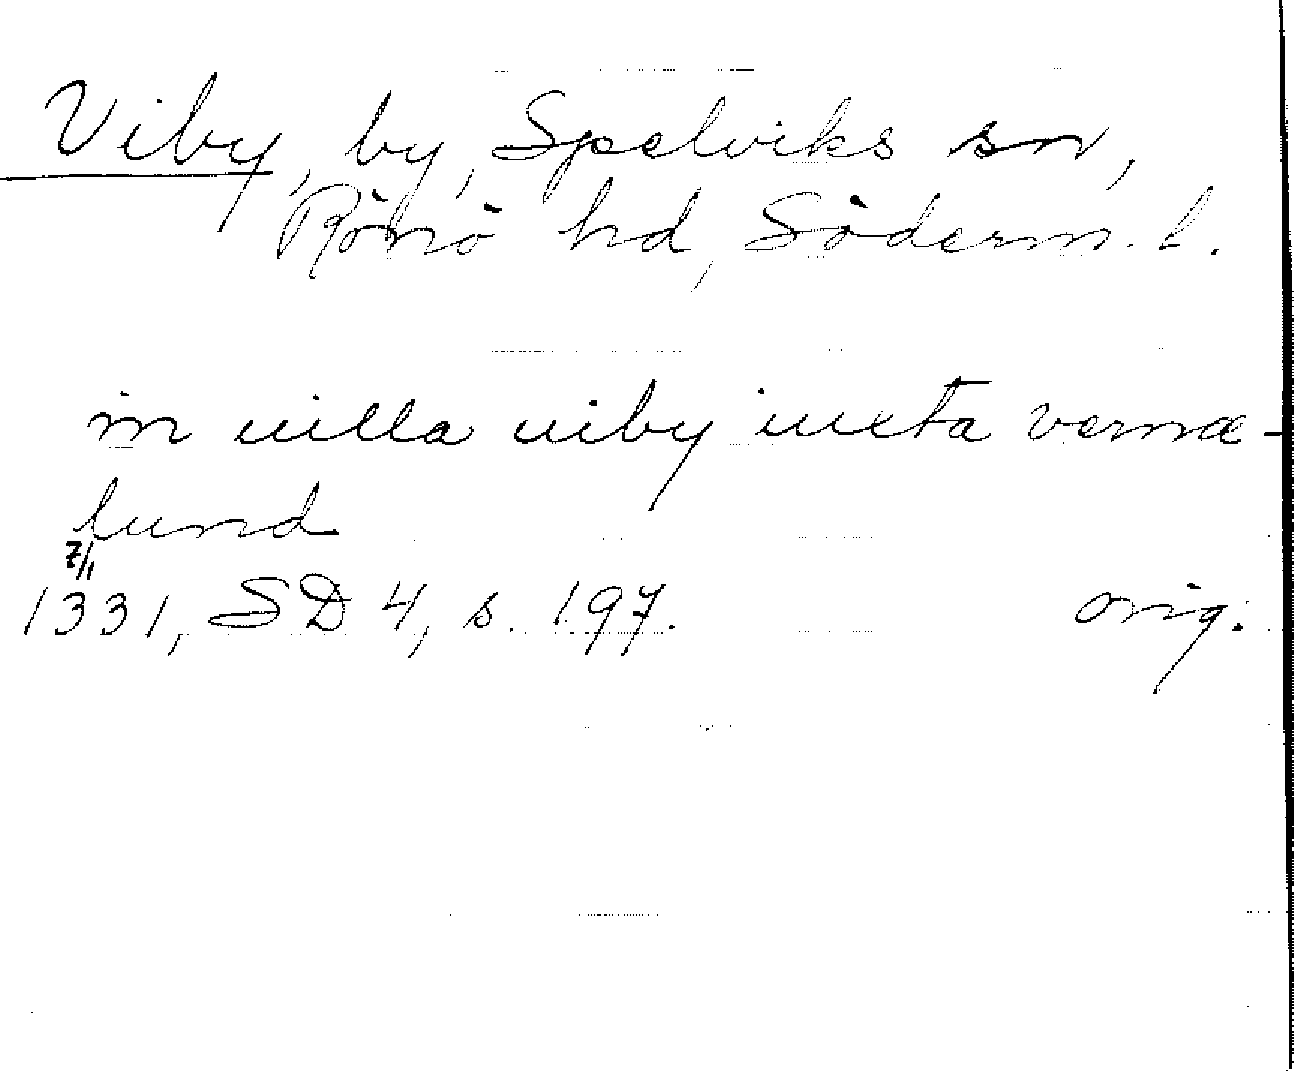 Viby, by, Spelviks sn,
Rönö hd, Söderm. l.
in uilla uiby iuxta vernæ-
lund
7/1
1331, SD 4, s. 197. orig.